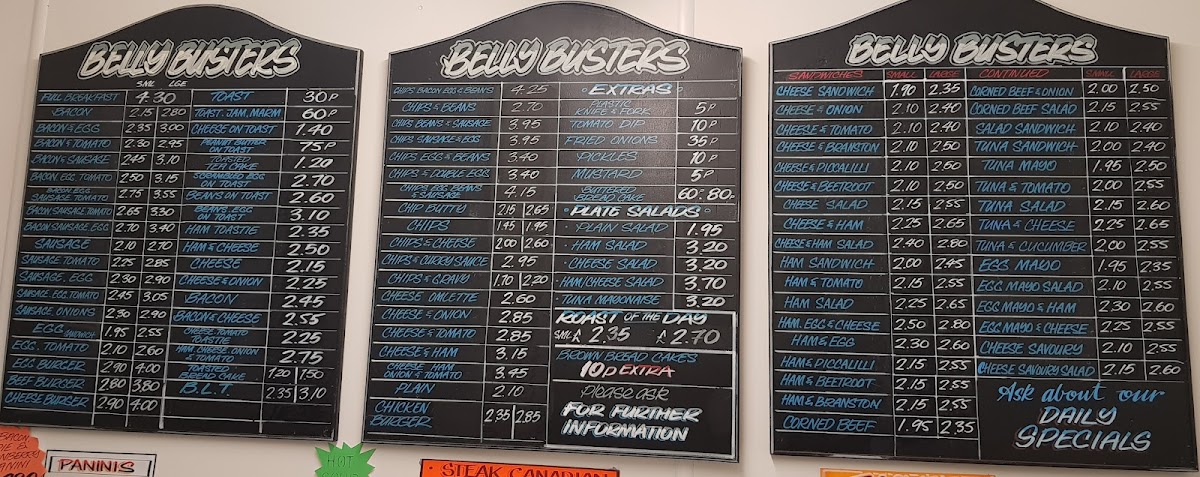 BELLY BUSTERS
SML LGE
FULL BREAKFAST 4.30
BACON 2.15 2.80
BACON & EGG 2.35 3.00
BACON & TOMATO 2.30 2.95
BACON & SAUSAGE 2.45 3.10
BACON, EGG, TOMATO 2.50 3.15
BACON, EGG, SAUSAGE, TOMATO 2.75 3.55
BACON SAUSAGE TOMATO 2.65 3.30
BACON SAUSAGE EGG 2.70 3.40
SAUSAGE 2.10 2.70
SAUSAGE TOMATO 2.25 2.85
SAUSAGE, EGG 2.30 2.90
SAUSAGE, EGG, TOMATO 2.45 3.05
SAUSAGE ONIONS 2.30 2.90
EGG SANDWICH 1.95 2.55
EGG, TOMATO 2.10 2.60
EGG BURGER 2.90 4.00
BEEF BURGER 2.80 3.80
CHEESE BURGER 2.90 4.00
TOAST 30P
TOAST, JAM, MARM 60P
CHEESE ON TOAST 1.40
PEANUT BUTTER ON TOAST 75P
TOASTED TEA CAKE 1.20
SCRAMBLED EGG ON TOAST 2.70
BEANS ON TOAST 2.60
BEANS EGG ON TOAST 3.10
HAM TOASTIE 2.35
HAM & CHEESE 2.50
CHEESE 2.15
CHEESE & ONION 2.25
BACON 2.45
BACON & CHEESE 2.55
CHEESE TOMATO TOASTIE 2.25
HAM, CHEESE, ONION & TOMATO 2.75
TOASTED BREAD CAKE 1.20 1.50
B.L.T. 2.35 3.10
BELLY BUSTERS
CHIPS BACON EGG & BEANS 4.25
CHIPS & BEANS 2.70
CHIPS BEANS & SAUSAGE 3.95
CHIPS SAUSAGE & EGG 3.95
CHIPS EGG & BEANS 3.40
CHIPS & DOUBLE EGG 3.40
CHIPS EGG BEANS SAUSAGE 4.15
CHIP BUTTY 2.15 2.65
CHIPS 1.45 1.95
CHIPS & CHEESE 2.00 2.60
CHIPS & CURRY SAUCE 2.95
CHIPS & GRAVY 1.70 2.20
CHEESE OMLETTE 2.60
CHEESE & ONION 2.85
CHEESE & TOMATO 2.85
CHEESE & HAM 3.15
CHEESE HAM ONION & TOMATO 3.45
PLAIN 2.10
CHICKEN BURGER 2.35 2.85
• EXTRAS •
PLASTIC KNIFE & FORK 5P
TOMATO DIP 10P
FRIED ONIONS 35P
PICKLES 10P
MUSTARD 5P
BUTTERED BREAD CAKE 60P 80P
• PLATE SALADS •
• PLAIN SALAD 1.95
• HAM SALAD 3.20
• CHEESE SALAD 3.20
• HAM/CHEESE SALAD 3.70
• TUNA MAYONAISE 3.20
ROAST OF THE DAY
SML £ 2.35 £ 2.70
BROWN BREAD CAKES
10P EXTRA
Please ask
FOR FURTHER
INFORMATION
BELLY BUSTERS
SANDWICHES SMALL LARGE
CHEESE SANDWICH 1.90 2.35
CHEESE & ONION 2.10 2.40
CHEESE & TOMATO 2.10 2.40
CHEESE & BRANSTON 2.10 2.50
CHEESE & PICCALILLI 2.10 2.50
CHEESE & BEETROOT 2.10 2.50
CHEESE SALAD 2.15 2.55
CHEESE & HAM 2.25 2.65
CHEESE & HAM SALAD 2.40 2.80
HAM SANDWICH 2.00 2.45
HAM & TOMATO 2.15 2.55
HAM SALAD 2.25 2.65
HAM, EGG & CHEESE 2.50 2.80
HAM & EGG 2.30 2.60
HAM & PICCALILLI 2.15 2.55
HAM & BEETROOT 2.15 2.55
HAM & BRANSTON 2.15 2.55
CORNED BEEF 1.95 2.35
CONTINUED SMALL LARGE
CORNED BEEF & ONION 2.00 2.50
CORNED BEEF SALAD 2.15 2.55
SALAD SANDWICH 2.10 2.40
TUNA SANDWICH 2.00 2.40
TUNA MAYO 1.95 2.50
TUNA & TOMATO 2.00 2.55
TUNA SALAD 2.10 2.60
TUNA & CHEESE 2.25 2.65
TUNA & CUCUMBER 2.00 2.55
EGG MAYO 1.95 2.35
EGG MAYO SALAD 2.10 2.50
EGG MAYO & HAM 2.30 2.60
EGG MAYO & CHEESE 2.25 2.55
CHEESE SAVOURY 2.10 2.55
CHEESE SAVOURY SALAD 2.15 2.60
Ask about our
DAILY
SPECIALS
BACON
PANINI
PANINIS
HOT
• STEAK CANADIAN